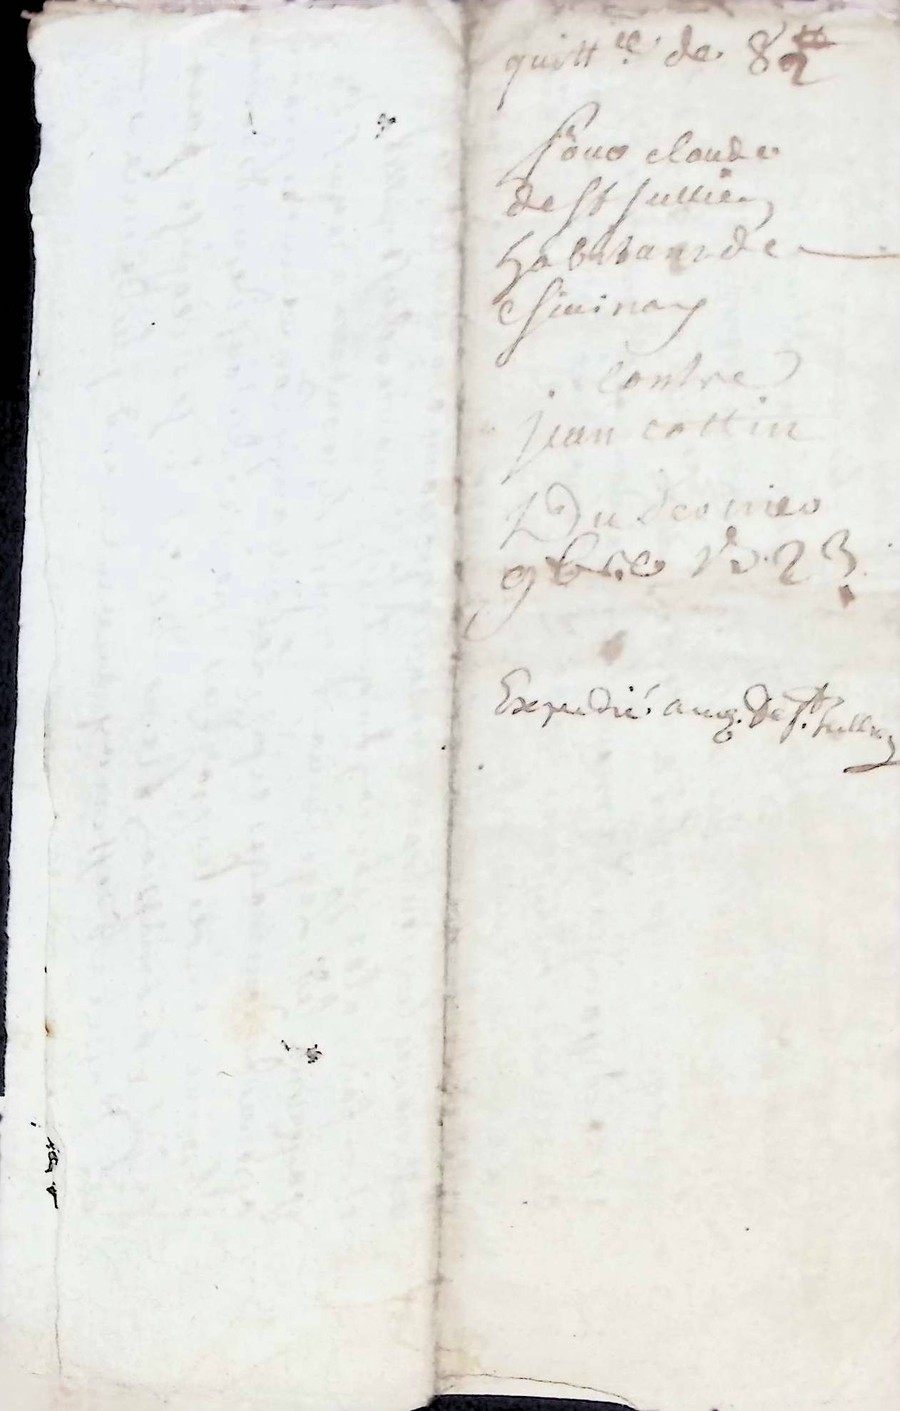 quitt^ce de 8^tt
pour claude
de St Jullien
habitant de
chivinay
contre
jean cottin
Du dernier
9bre 1723
Expedié aud. De St. Jullien